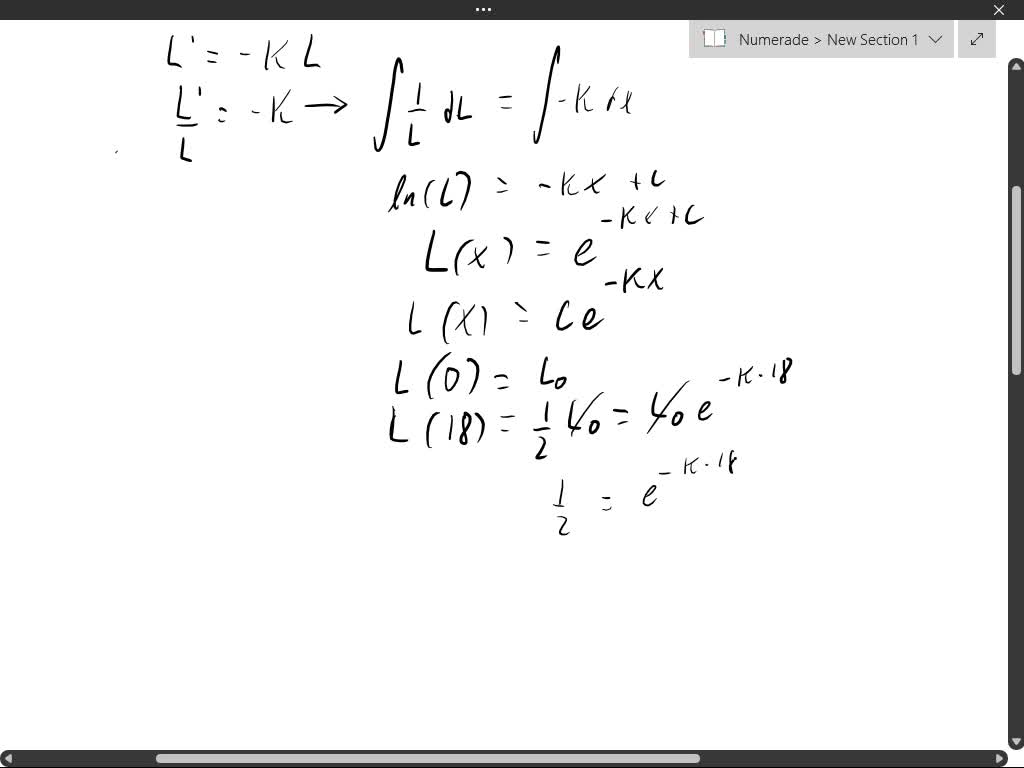 Numerade > New Section 1
L' = -K L
L'/L = -K → ∫ 1/L dL = ∫ -K dx
ln(L) = -Kx + C
L(x) = e^{-Kx+C}
L(x) = Ce^{-Kx}
L(0) = L₀
L(18) = 1/2 L₀ = L₀ e^{-K·18}
1/2 = e^{-K·18}